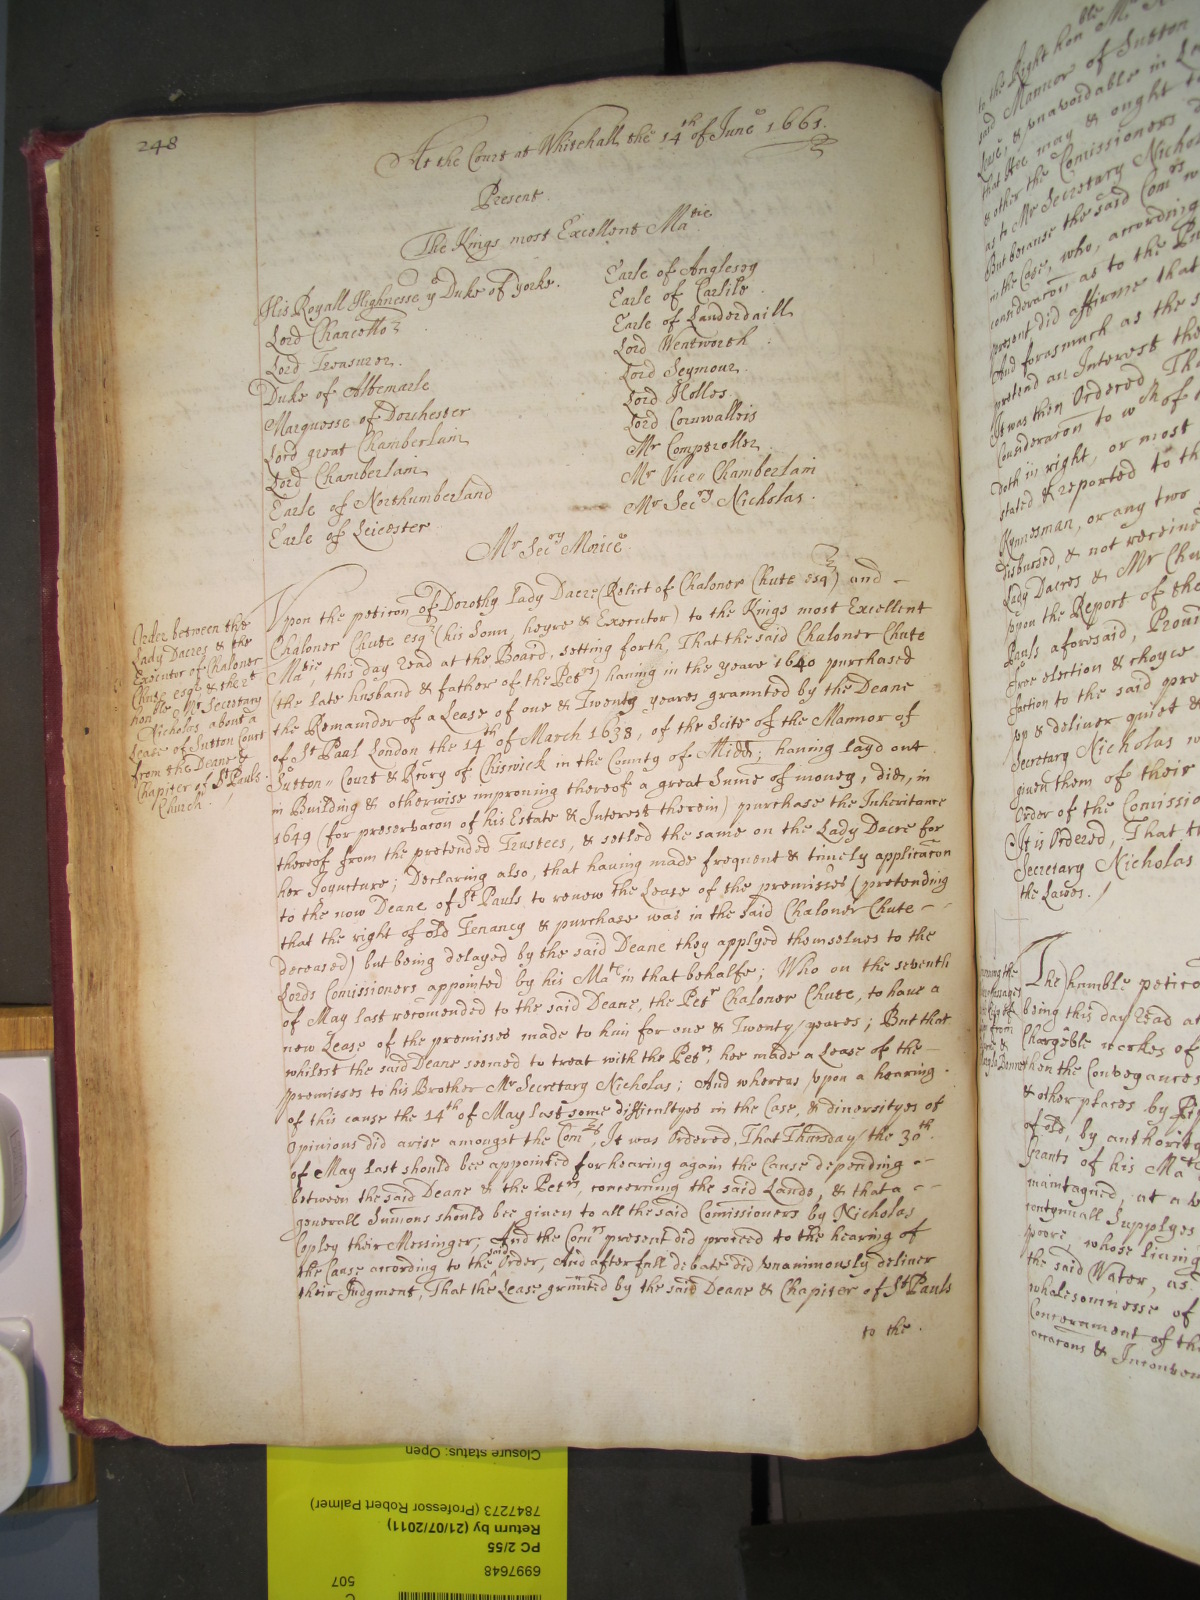 248
At the Court at Whitehall the 14th of June 1661.
Present.
The Kings most Excellent Matie
His Royall Highnesse ye Duke of Yorke.
Lord Chancellor
Lord Treasurer.
Duke of Albemarle
Marquesse of Dorchester
Lord great Chamberlain
Lord Chamberlain
Earle of Northumberland
Earle of Leicester
Earle of Anglesey
Earle of Carlile
Earle of Lauderdaill
Lord Wentworth
Lord Seymour
Lord Holles
Lord Cornwallis
Mr Comptroller
Mr Vice Chamberlain
Mr Secry Nicholas.
Mr Secry Morice
Order between the
Lady Dacres & the
Executor of Chaloner
Chute esqr & the rt
honble Mr Secretary
Nicholas about a
Lease of Sutton Court
from the Deane &
Chapiter of St Pauls
Church.
Upon the peticon of Dorothy Lady Dacre (Relict of Chaloner Chute esqr) and
Chaloner Chute esqr (his Sonn, heyre & Executor) to the Kings most Excellent
Matie this day read at the Board, setting forth, That the said Chaloner Chute
(the late husband & father of the Petrs) having in the yeare 1640 purchased
the Remainder of a Lease of one & Twenty yeares graunted by the Deane
of St Paul London the 14th of March 1638, of the Scite of the Mannor of
Sutton Court & Rcory of Chiswick in the County of Midd; having layd out
in Building & otherwise improving thereof a great Sume of money, did, in
1649 (for preservacon of his Estate & Interest therein) purchase the Inheritance
thereof from the pretended Trustees, & setled the same on the Lady Dacre for
her Joyncture; Declaring also, that having made frequent & timely applicacon
to the now Deane of St Pauls to renew the Lease of the premisses (pretending
that the right of old Tenancy & purchase was in the said Chaloner Chute
deceased) but being delayed by the said Deane they applyed themselves to the
Lords Comissioners appointed by his Matie in that behalfe; Who on the seventh
of May last recomended to the said Deane, the Petr Chaloner Chute, to have a
new Lease of the premisses made to him for one & Twenty yeares; But that
whilest the said Deane seemed to treat with the Petrs, hee made a Lease of the
premisses to his Brother Mr Secretary Nicholas; And whereas upon a hearing
of this cause the 14th of May last some difficultyes in the Case, & diversityes of
Opinions did arise amongst the Comrs, It was Ordered, That Thursday the 30th
of May last should bee appointed for hearing again the Cause depending
between the said Deane & the Petrs, concerning the said Lands, & that a
generall Sumons should bee given to all the said Comissioners by Nicholas
Copley their Messinger; And the Comrs present did proceed to the hearing of
the Cause according to the said Order, And after full debate did unanimously deliver
their Judgment, That the Lease graunted by the said Deane & Chapiter of St Pauls
to the.
to the Right honble Mr
said Mannor of Sutton
Lease & unavoidable in
that Hee may & ought
& other the Comissioners
as to Mr Secretary Nichol
But because the said Comrs
in the Case, who, according
consideracon as to the
present did affirme that
And forasmuch as the
pretend an Interest the
It was then Ordered, Tha
Consideracon to wch of
doth in right, or most
stated & reported to th
Kynnesman, or any two
disbursed, & not receive
Lady Dacres & Mr Chu
Upon the Report of the
Pauls aforesaid, Provi
free election & choyce
faction to the said pre
up & deliver quiet &
Secretary Nicholas
given them of their
Order of the Comissio
It is Ordered, That t
Secretary Nicholas
the Lawes.
The humble petico
being this day read at
Chargeble workes of
when the Conveyances
& other places by
of old, by authority
Grants of his Matie
maintayned, at a
contynuall Supplyes
poore, whose living
the said Water, as
wholesomnesse of
Concernment of th
Closure status: Open
7847273 (Professor Robert Palmer)
Return by (21/07/2011)
PC 2/55
6997648
507